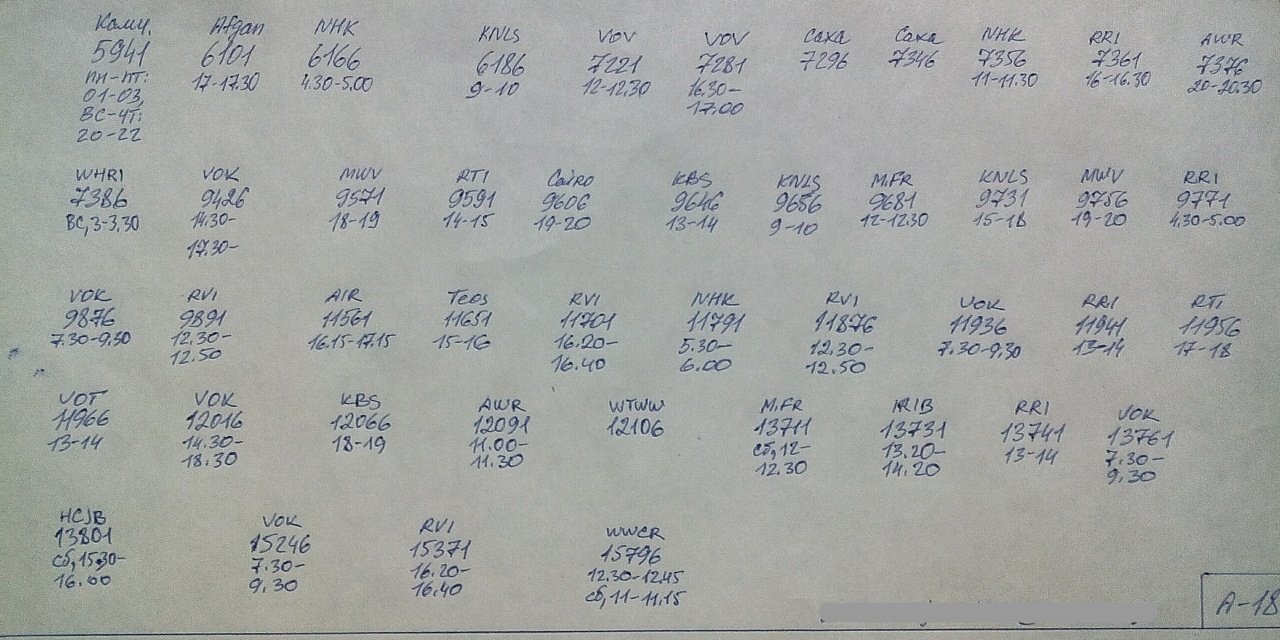 Камч. Afgan NHK KNLS VOV VOV Саха Саха NHK RRI AWR
5941 6101 6166 6186 7221 7281 7296 7346 7356 7361 7376
ПН-ПТ: 17-17.30 4.30-5.00 9-10 12-12.30 16.30- 11-11.30 16-16.30 20-20.30
01-03, 17.00
ВС-ЧТ:
20-22
WHRI VOK MWV RTI Cairo KBS KNLS MiFR KNLS MWV RRI
7386 9426 9571 9591 9606 9646 9656 9681 9731 9756 9771
ВС, 3-3.30 14.30- 18-19 14-15 19-20 13-14 9-10 12-12.30 15-18 19-20 4.30-5.00
17.30-
VOK RVI AIR Teos RVI NHK RVI VOK RRI RTI
9876 9891 11561 11651 11701 11791 11876 11936 11941 11956
7.30-9.30 12.30- 16.15-17.15 15-16 16.20- 5.30- 12.30- 7.30-9.30 13-14 17-18
12.50 16.40 6.00 12.50
VOT VOK KBS AWR WTWW MiFR IRIB RRI VOK
11966 12016 12066 12091 12106 13711 13731 13741 13761
13-14 14.30- 18-19 11.00- сб, 12- 13.20- 13-14 7.30-
18.30 11.30 12.30 14.20 9.30
HCJB VOK RVI WWCR
13801 15246 15371 15796
сб, 15.30- 7.30- 16.20- 12.30-12.45
16.00 9.30 16.40 сб, 11-11.15
A-18